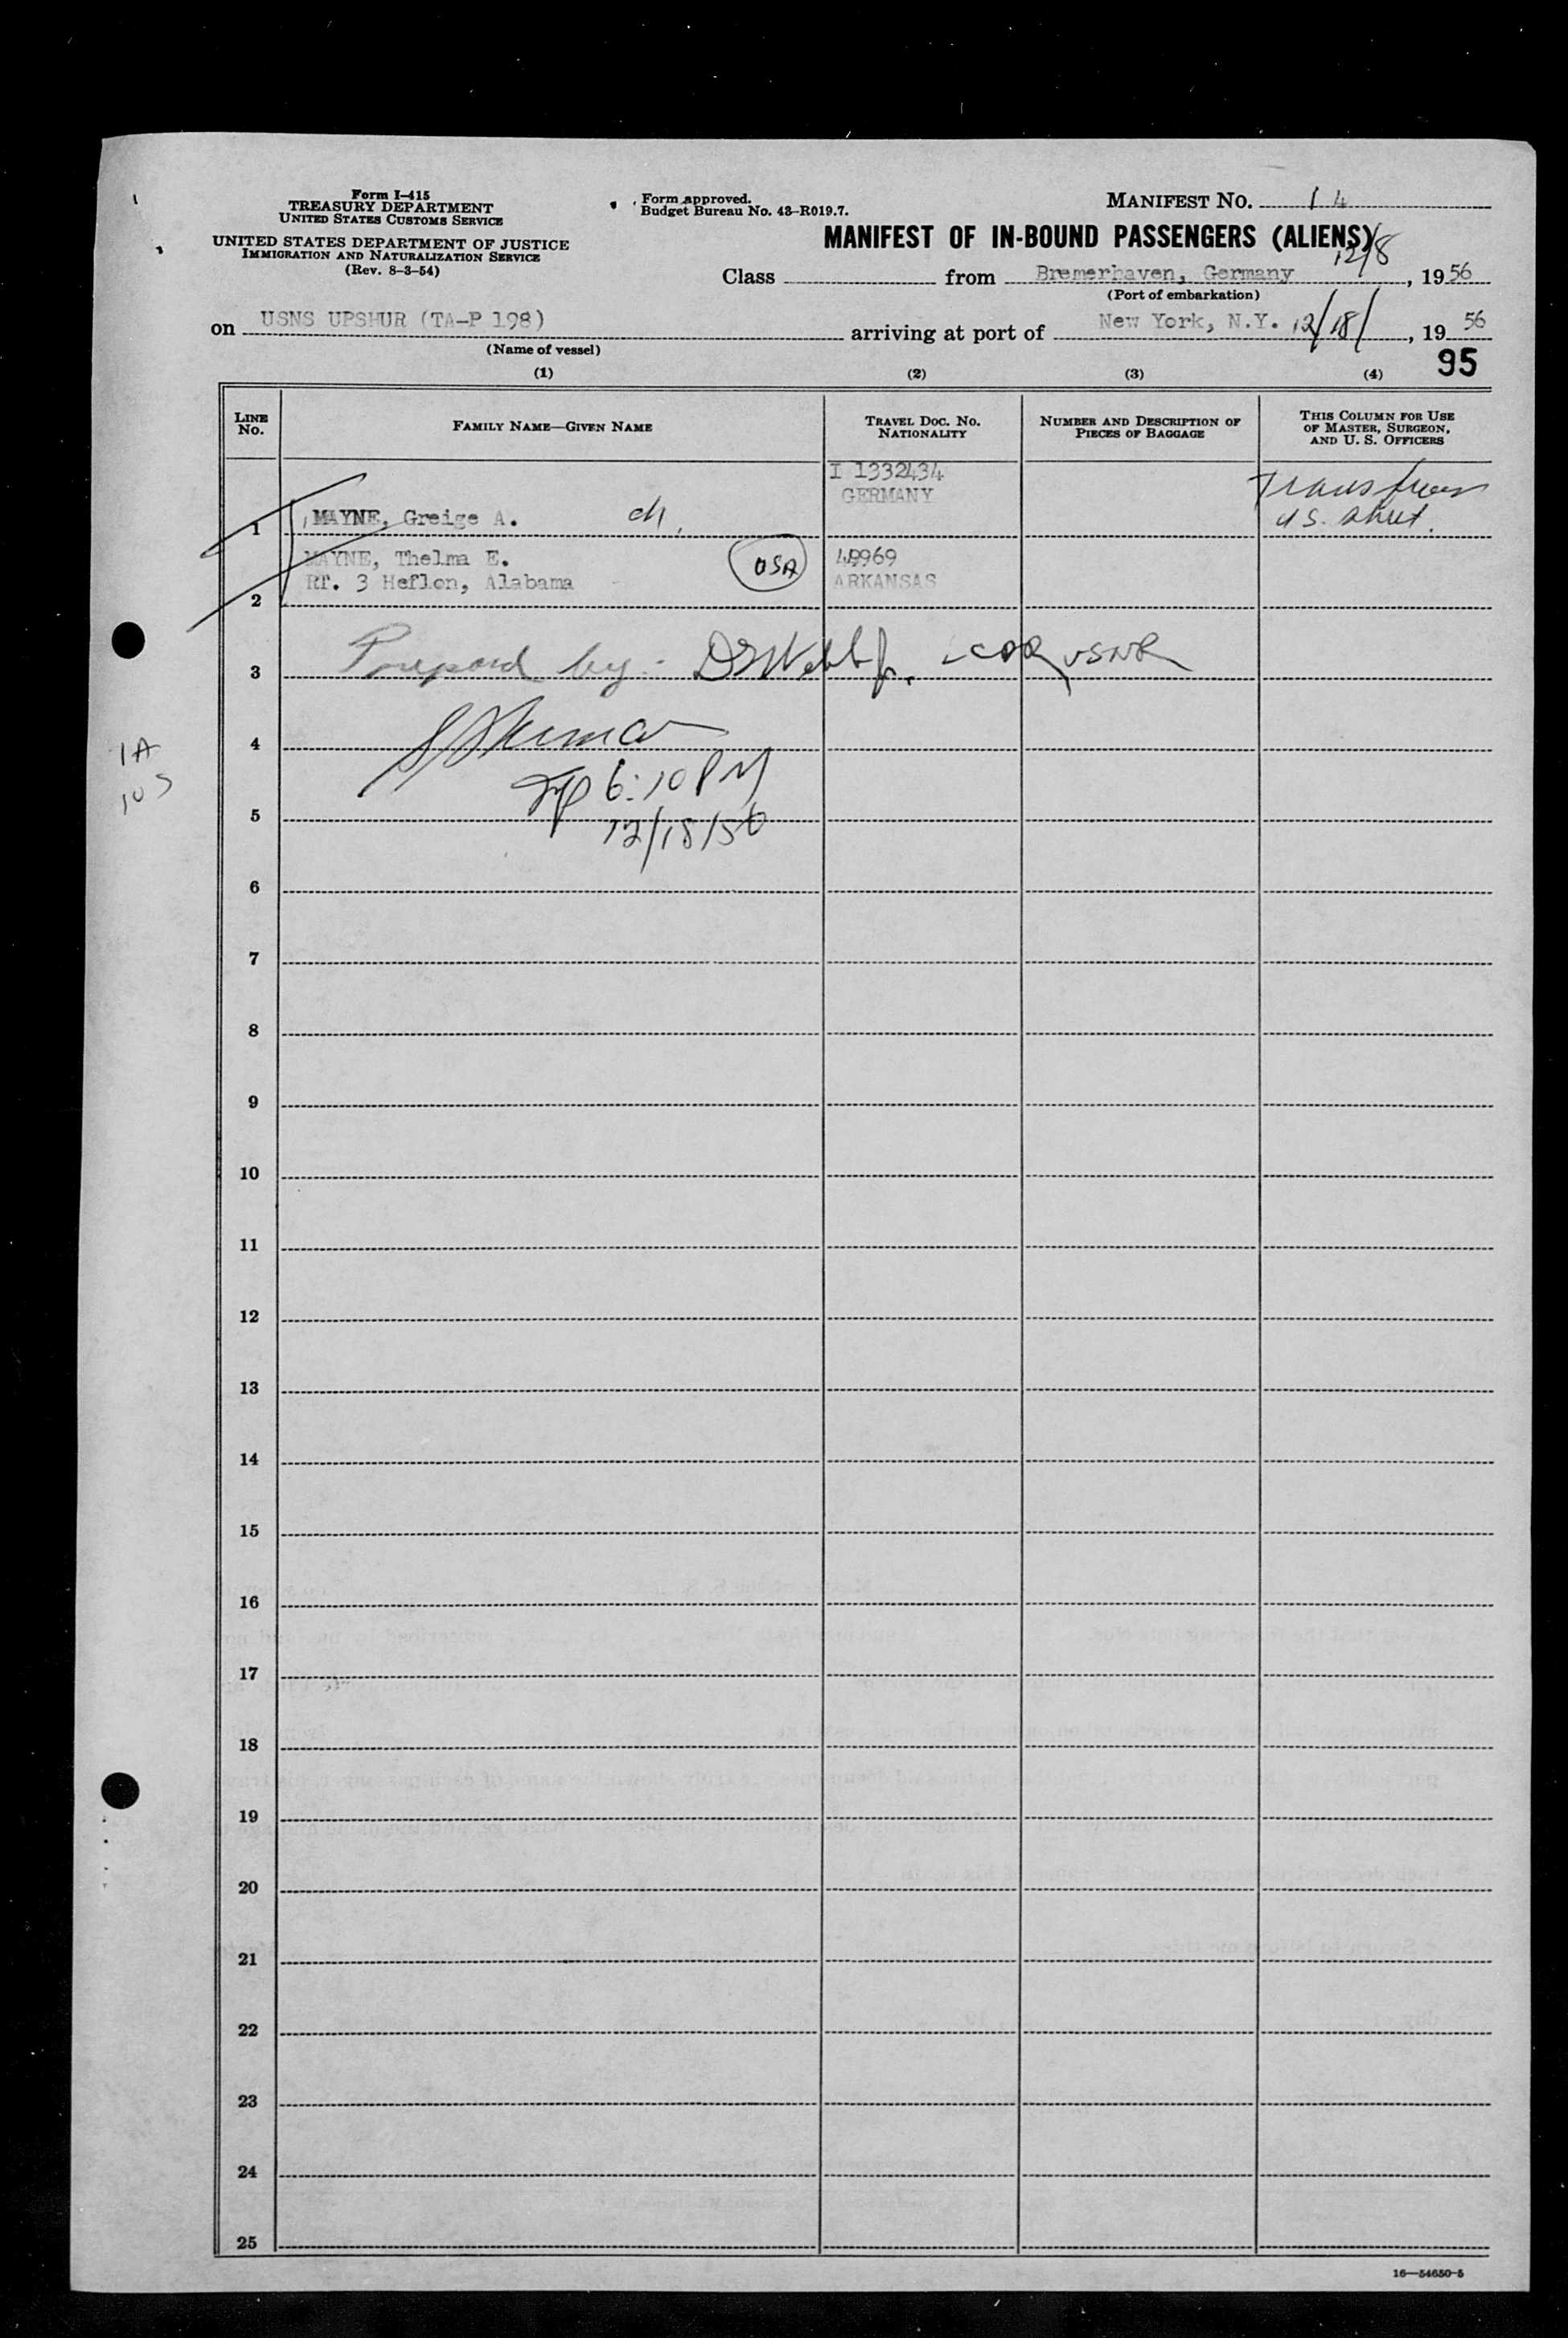 Form I-415
TREASURY DEPARTMENT
UNITED STATES CUSTOMS SERVICE
UNITED STATES DEPARTMENT OF JUSTICE
IMMIGRATION AND NATURALIZATION SERVICE
(Rev. 8-3-54)
Form approved.
Budget Bureau No. 43-R019.7.
MANIFEST No. 14
MANIFEST OF IN-BOUND PASSENGERS (ALIENS)
Class from Bremerhaven, Germany 12/8, 1956
(Port of embarkation)
on USNS UPSHUR (TA-P 198) arriving at port of New York, N.Y. 12/18/, 1956
(Name of vessel)
95
(1) (2) (3) (4)
LINE No.
FAMILY NAME—GIVEN NAME
TRAVEL DOC. No. NATIONALITY
NUMBER AND DESCRIPTION OF PIECES OF BAGGAGE
THIS COLUMN FOR USE OF MASTER, SURGEON, AND U. S. OFFICERS
I 1332434
GERMANY
1 MAYNE, Greige A. ch.
Trans from
U S. sheet.
MAYNE, Thelma E. USA 49969
2 Rt. 3 Heflon, Alabama ARKANSAS
3 Prepared by:- LCDR USNR
4
6:10 PM
5 12/18/56
1A
6
7
8
9
10
11
12
13
14
15
16
17
18
19
20
21
22
23
24
25
16—54650-5